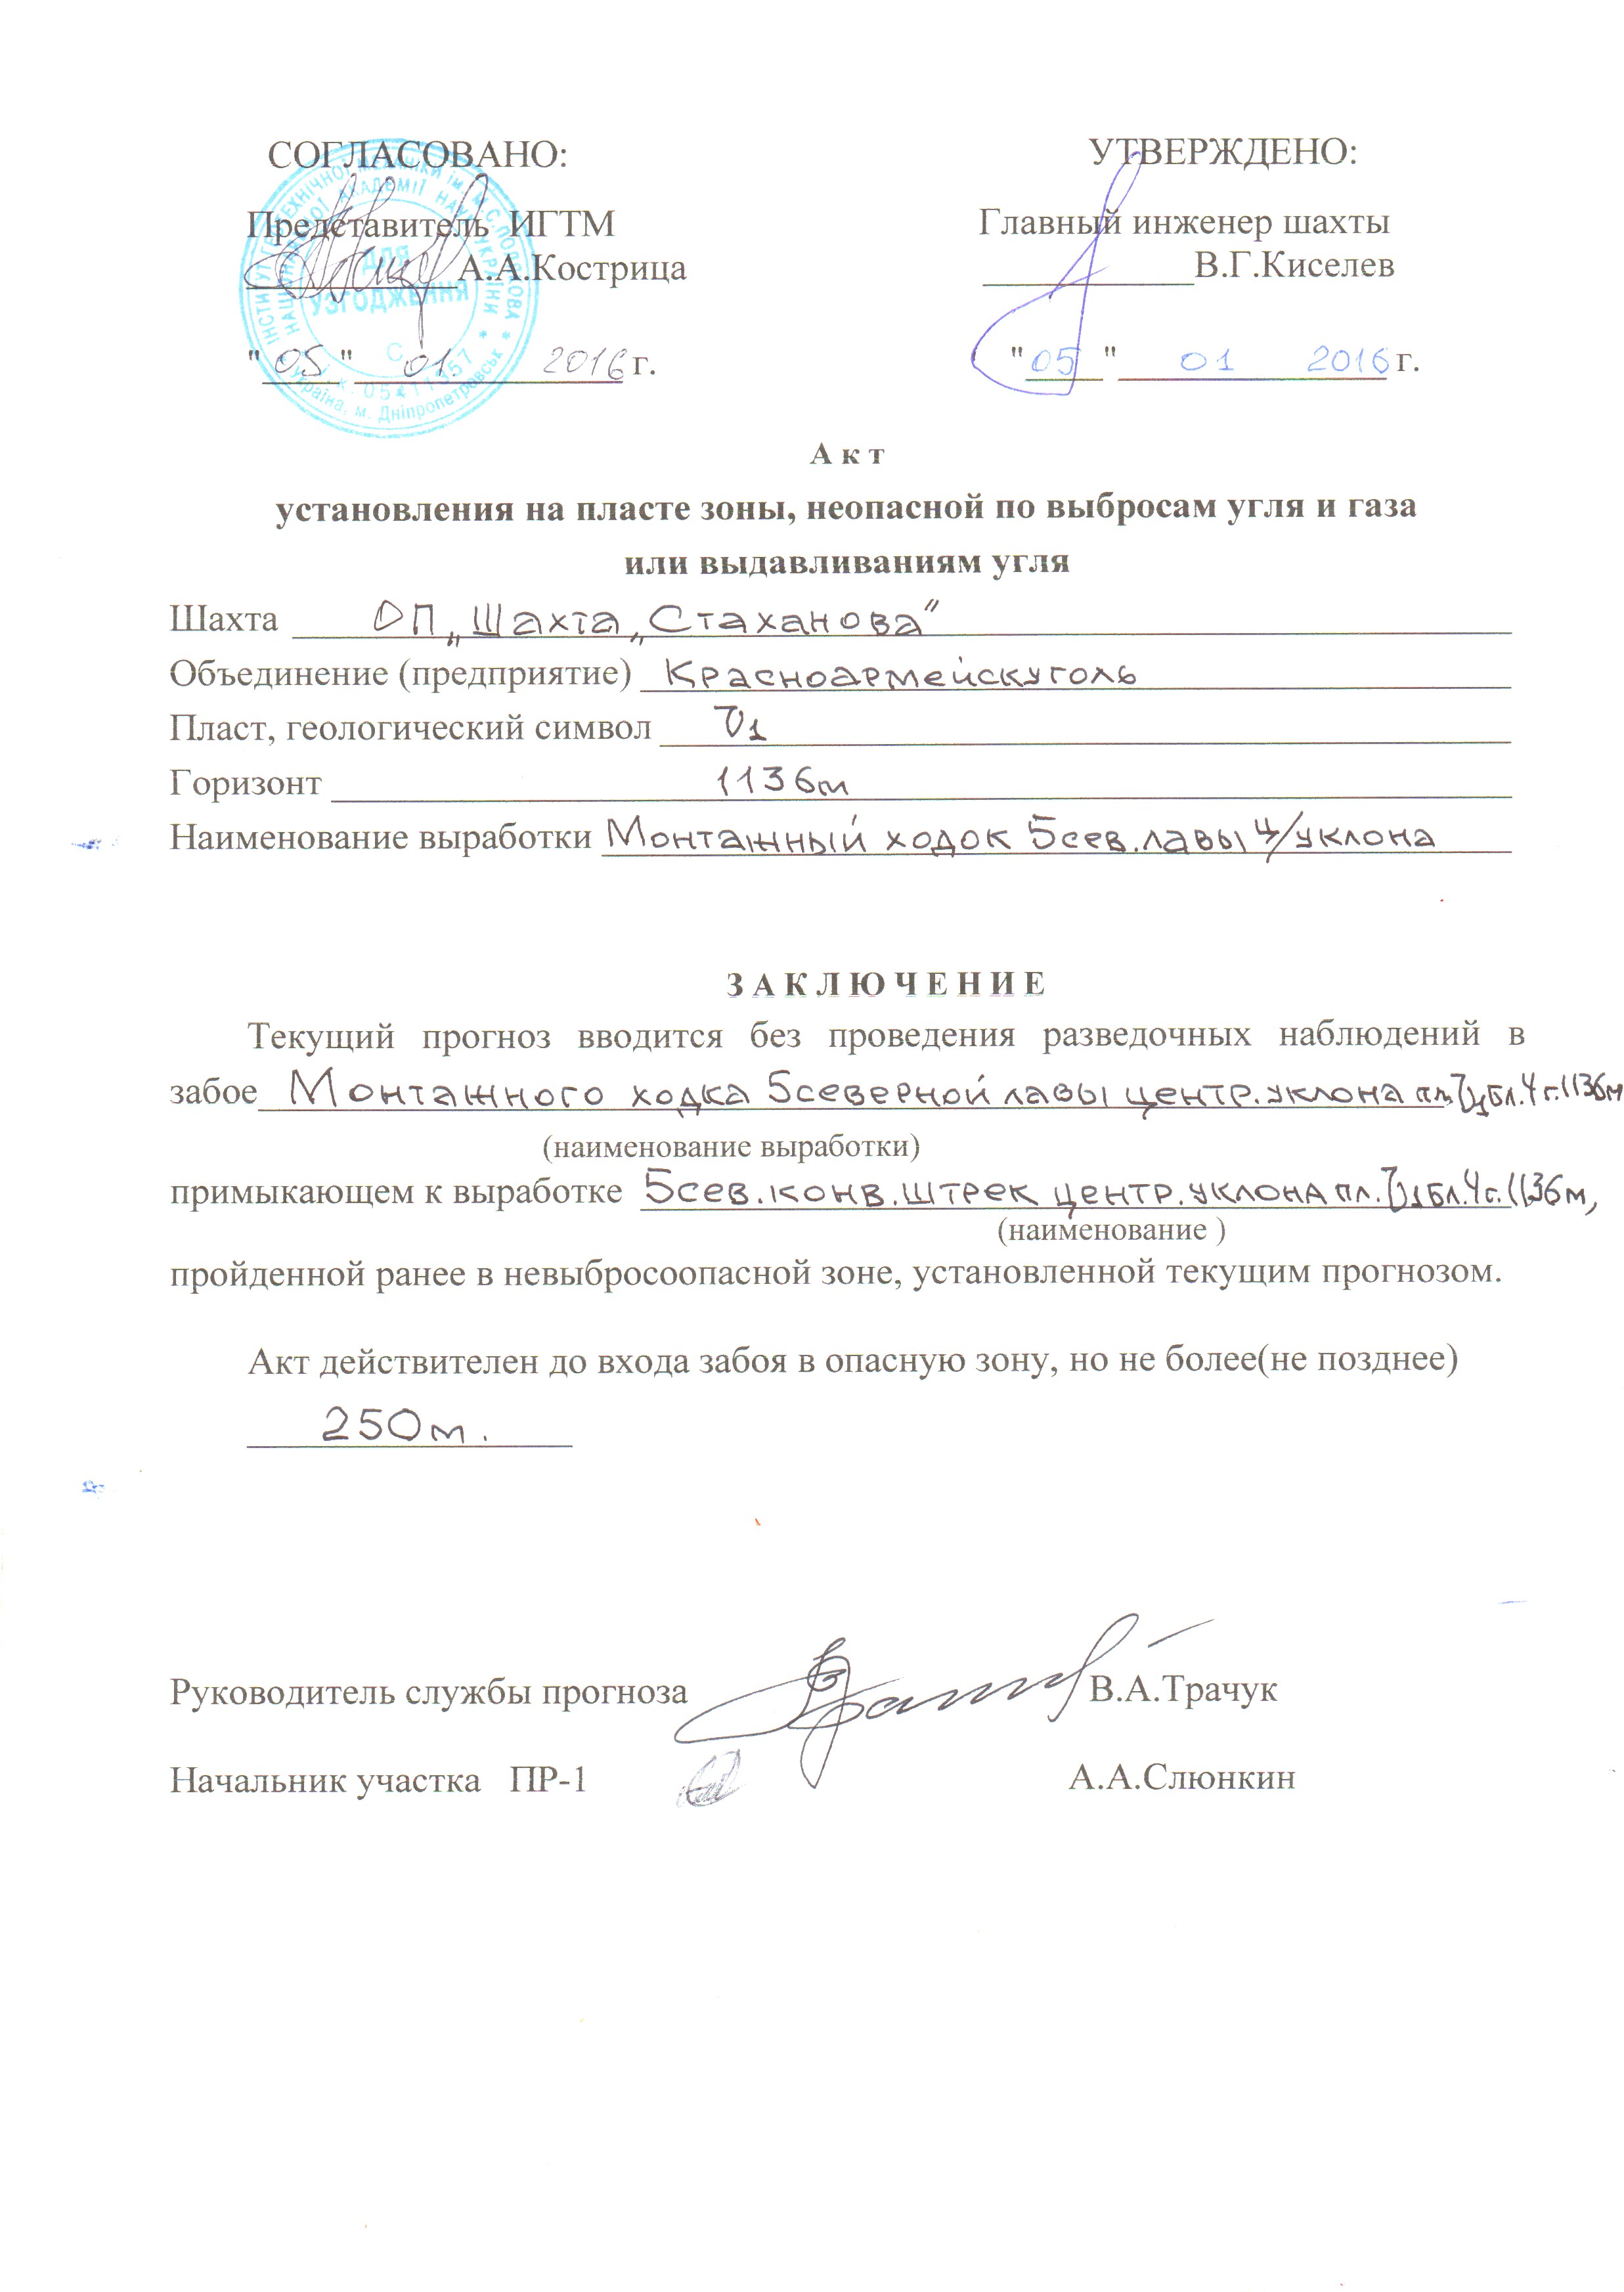 СОГЛАСОВАНО: УТВЕРЖДЕНО:
Представитель ИГТМ Главный инженер шахты
А.А.Кострица В.Г.Киселев
"05" 01. 2016 г. "05" 01 2016 г.
ІНСТИТУТ ГЕОТЕХНІЧНОЇ МЕХАНІКИ ім. М.С.ПОЛЯКОВА
НАЦІОНАЛЬНОЇ АКАДЕМІЇ НАУК УКРАЇНИ
ДЛЯ
УЗГОДЖЕННЯ
Україна, м. Дніпропетровськ
Акт
установления на пласте зоны, неопасной по выбросам угля и газа
или выдавливаниям угля
Шахта ОП „Шахта „Стаханова"
Объединение (предприятие) Красноармейскуголь
Пласт, геологический символ l1
Горизонт 1136м
Наименование выработки Монтажный ходок 5сев.лавы ц/уклона
ЗАКЛЮЧЕНИЕ
Текущий прогноз вводится без проведения разведочных наблюдений в
забое Монтажного ходка 5северной лавы центр.уклона пл. l1 бл.4 г.1136м
(наименование выработки)
примыкающем к выработке 5сев.конв.штрек центр.уклона пл. l1 бл.4 г.1136м,
(наименование )
пройденной ранее в невыбросоопасной зоне, установленной текущим прогнозом.
Акт действителен до входа забоя в опасную зону, но не более(не позднее)
250м.
Руководитель службы прогноза В.А.Трачук
Начальник участка ПР-1 А.А.Слюнкин